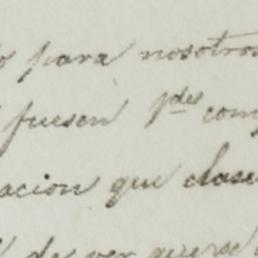 o para nosotros
fuesen pdes com
acion que clase
de ver que se